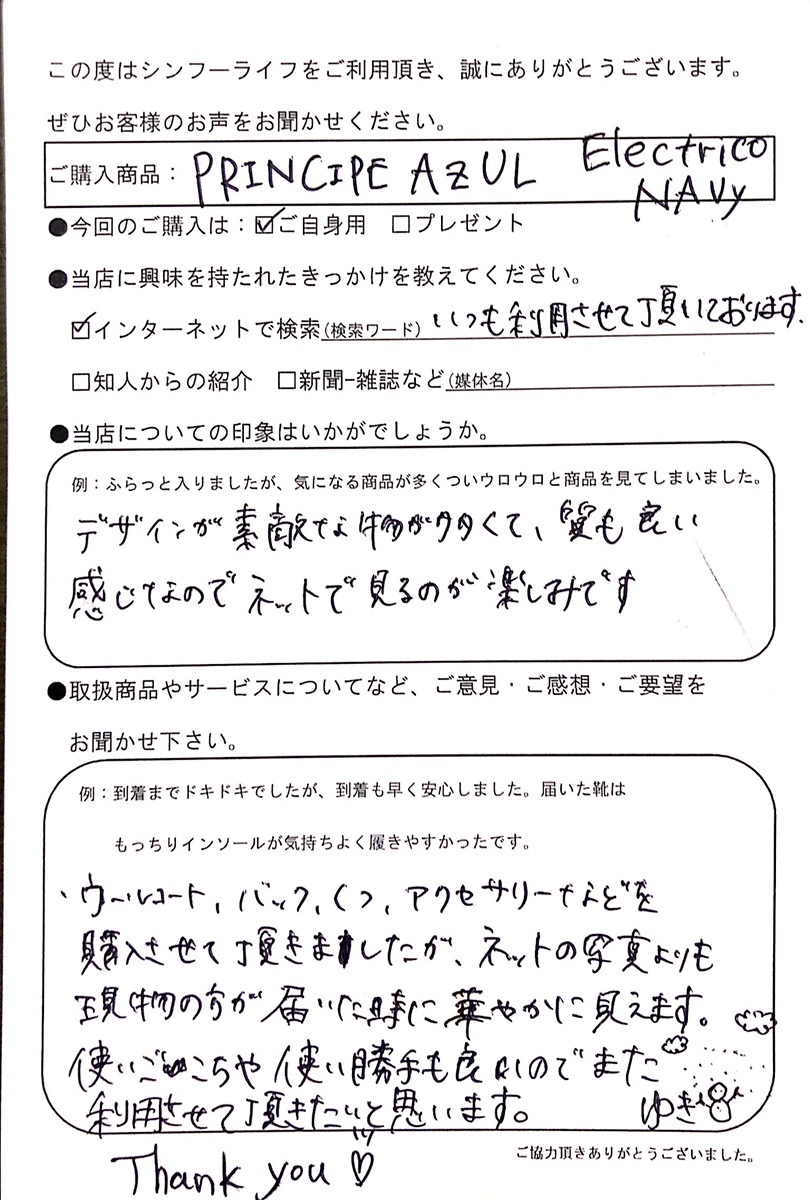 この度はシンフーライフをご利用頂き、誠にありがとうございます。
ぜひお客様のお声をお聞かせください。
ご購入商品： PRINCIPE AZUL Electrico
NAVy
●今回のご購入は：☑ご自身用 □プレゼント
●当店に興味を持たれたきっかけを教えてください。
☑インターネットで検索(検索ワード) いつも利用させて頂いております.
□知人からの紹介 □新聞-雑誌など(媒体名)
●当店についての印象はいかがでしょうか。
例：ふらっと入りましたが、気になる商品が多くついウロウロと商品を見てしまいました。
デザインが素敵な物が多くて、質も良い
感じなのでネットで見るのが楽しみです
●取扱商品やサービスについてなど、ご意見・ご感想・ご要望を
お聞かせ下さい。
例：到着までドキドキでしたが、到着も早く安心しました。届いた靴は
もっちりインソールが気持ちよく履きやすかったです。
、ウールコート, バック, くつ, アクセサリーなどを
購入させて頂きましたが、ネットの写真よりも
現物の方が届いた時に華やかに見えます。
使いごこちや使い勝手も良いのでまた
利用させて頂きたいと思います。 ゆき
Thank you ♡
ご協力頂きありがとうございました。